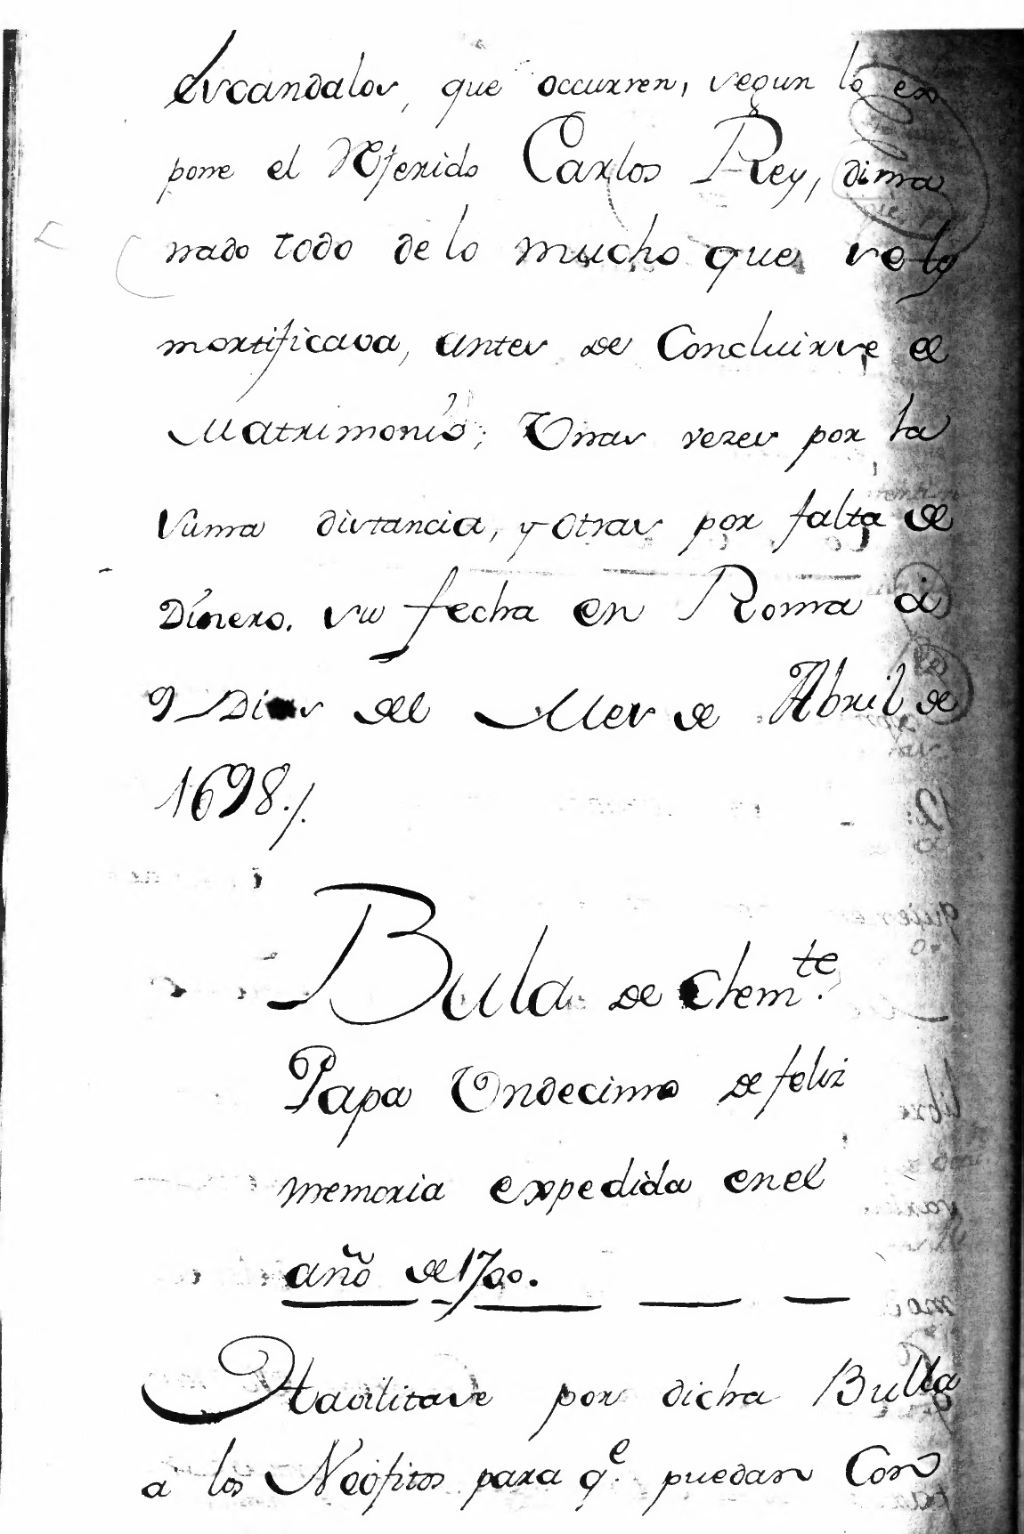 Escandalos, que occurren, segun lo ex
pone el Referido Carlos Rey, dima
nado todo de lo mucho que se les
mortificava, antes de Concluirse el
Matrimonio; Unas vezes por la
Suma distancia, y otras por falta de
Dinero. su fecha en Roma à
9 Dias del Mes de Abril de
1698./.
Bula de Clem.te
Papa Undecimo de feliz
memoria expedida en el
año de 1700.
Havilitase por dicha Bulla
a los Neófitos para q.e puedan Con